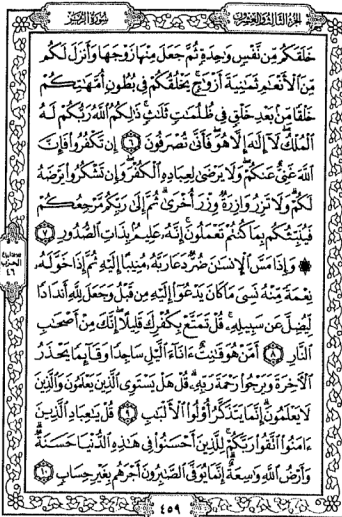 الجزء الثالث والعشرون
سورة الزمر
خَلَقَكُم مِّن نَّفْسٍ وَٰحِدَةٍ ثُمَّ جَعَلَ مِنْهَا زَوْجَهَا وَأَنزَلَ لَكُم
مِّنَ ٱلْأَنْعَٰمِ ثَمَٰنِيَةَ أَزْوَٰجٍ يَخْلُقُكُمْ فِى بُطُونِ أُمَّهَٰتِكُمْ
خَلْقًا مِّنۢ بَعْدِ خَلْقٍ فِى ظُلُمَٰتٍ ثَلَٰثٍ ذَٰلِكُمُ ٱللَّهُ رَبُّكُمْ لَهُ
ٱلْمُلْكُ لَآ إِلَٰهَ إِلَّا هُوَ فَأَنَّىٰ تُصْرَفُونَ ٦ إِن تَكْفُرُوا۟ فَإِنَّ
ٱللَّهَ غَنِىٌّ عَنكُمْ وَلَا يَرْضَىٰ لِعِبَادِهِ ٱلْكُفْرَ وَإِن تَشْكُرُوا۟ يَرْضَهُ
لَكُمْ وَلَا تَزِرُ وَازِرَةٌ وِزْرَ أُخْرَىٰ ثُمَّ إِلَىٰ رَبِّكُم مَّرْجِعُكُمْ
فَيُنَبِّئُكُم بِمَا كُنتُمْ تَعْمَلُونَ إِنَّهُۥ عَلِيمٌۢ بِذَاتِ ٱلصُّدُورِ ٧
۞ وَإِذَا مَسَّ ٱلْإِنسَٰنَ ضُرٌّ دَعَا رَبَّهُۥ مُنِيبًا إِلَيْهِ ثُمَّ إِذَا خَوَّلَهُۥ
نِعْمَةً مِّنْهُ نَسِىَ مَا كَانَ يَدْعُوٓا۟ إِلَيْهِ مِن قَبْلُ وَجَعَلَ لِلَّهِ أَندَادًا
لِّيُضِلَّ عَن سَبِيلِهِۦ قُلْ تَمَتَّعْ بِكُفْرِكَ قَلِيلًا إِنَّكَ مِنْ أَصْحَٰبِ
ٱلنَّارِ ٨ أَمَّنْ هُوَ قَٰنِتٌ ءَانَآءَ ٱلَّيْلِ سَاجِدًا وَقَآئِمًا يَحْذَرُ
ٱلْءَاخِرَةَ وَيَرْجُوا۟ رَحْمَةَ رَبِّهِۦ قُلْ هَلْ يَسْتَوِى ٱلَّذِينَ يَعْلَمُونَ وَٱلَّذِينَ
لَا يَعْلَمُونَ إِنَّمَا يَتَذَكَّرُ أُو۟لُوا۟ ٱلْأَلْبَٰبِ ٩ قُلْ يَٰعِبَادِ ٱلَّذِينَ
ءَامَنُوا۟ ٱتَّقُوا۟ رَبَّكُمْ لِلَّذِينَ أَحْسَنُوا۟ فِى هَٰذِهِ ٱلدُّنْيَا حَسَنَةٌ
وَأَرْضُ ٱللَّهِ وَٰسِعَةٌ إِنَّمَا يُوَفَّى ٱلصَّٰبِرُونَ أَجْرَهُم بِغَيْرِ حِسَابٍ ١٠
٤٥٩